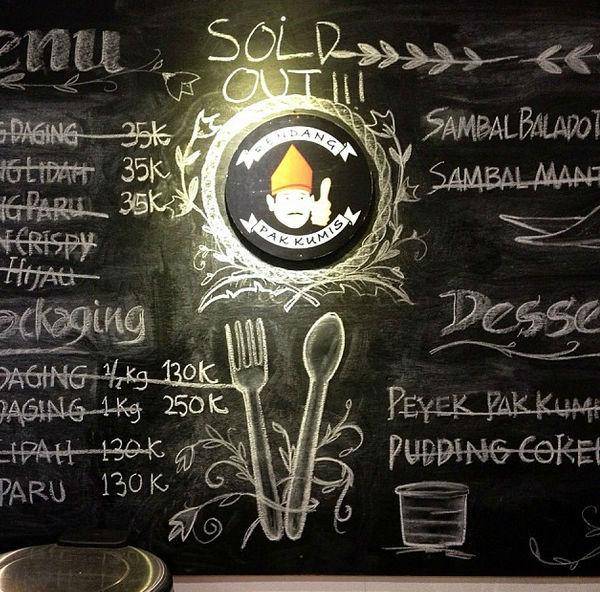 enu
SOLD
OUT!!!
G DAGING 35K
NG LIDAH 35K
NG PARU 35K
N CRISPY
HIJAU
RENDANG
PAK KUMIS
SAMBAL BALADO T
SAMBAL MANT
ackaging
DAGING 1/2 Kg 130K
DAGING 1 Kg 250K
LIDAH 130K
PARU 130K
Desse
PEYEK PAK KUMI
PUDDING COKE